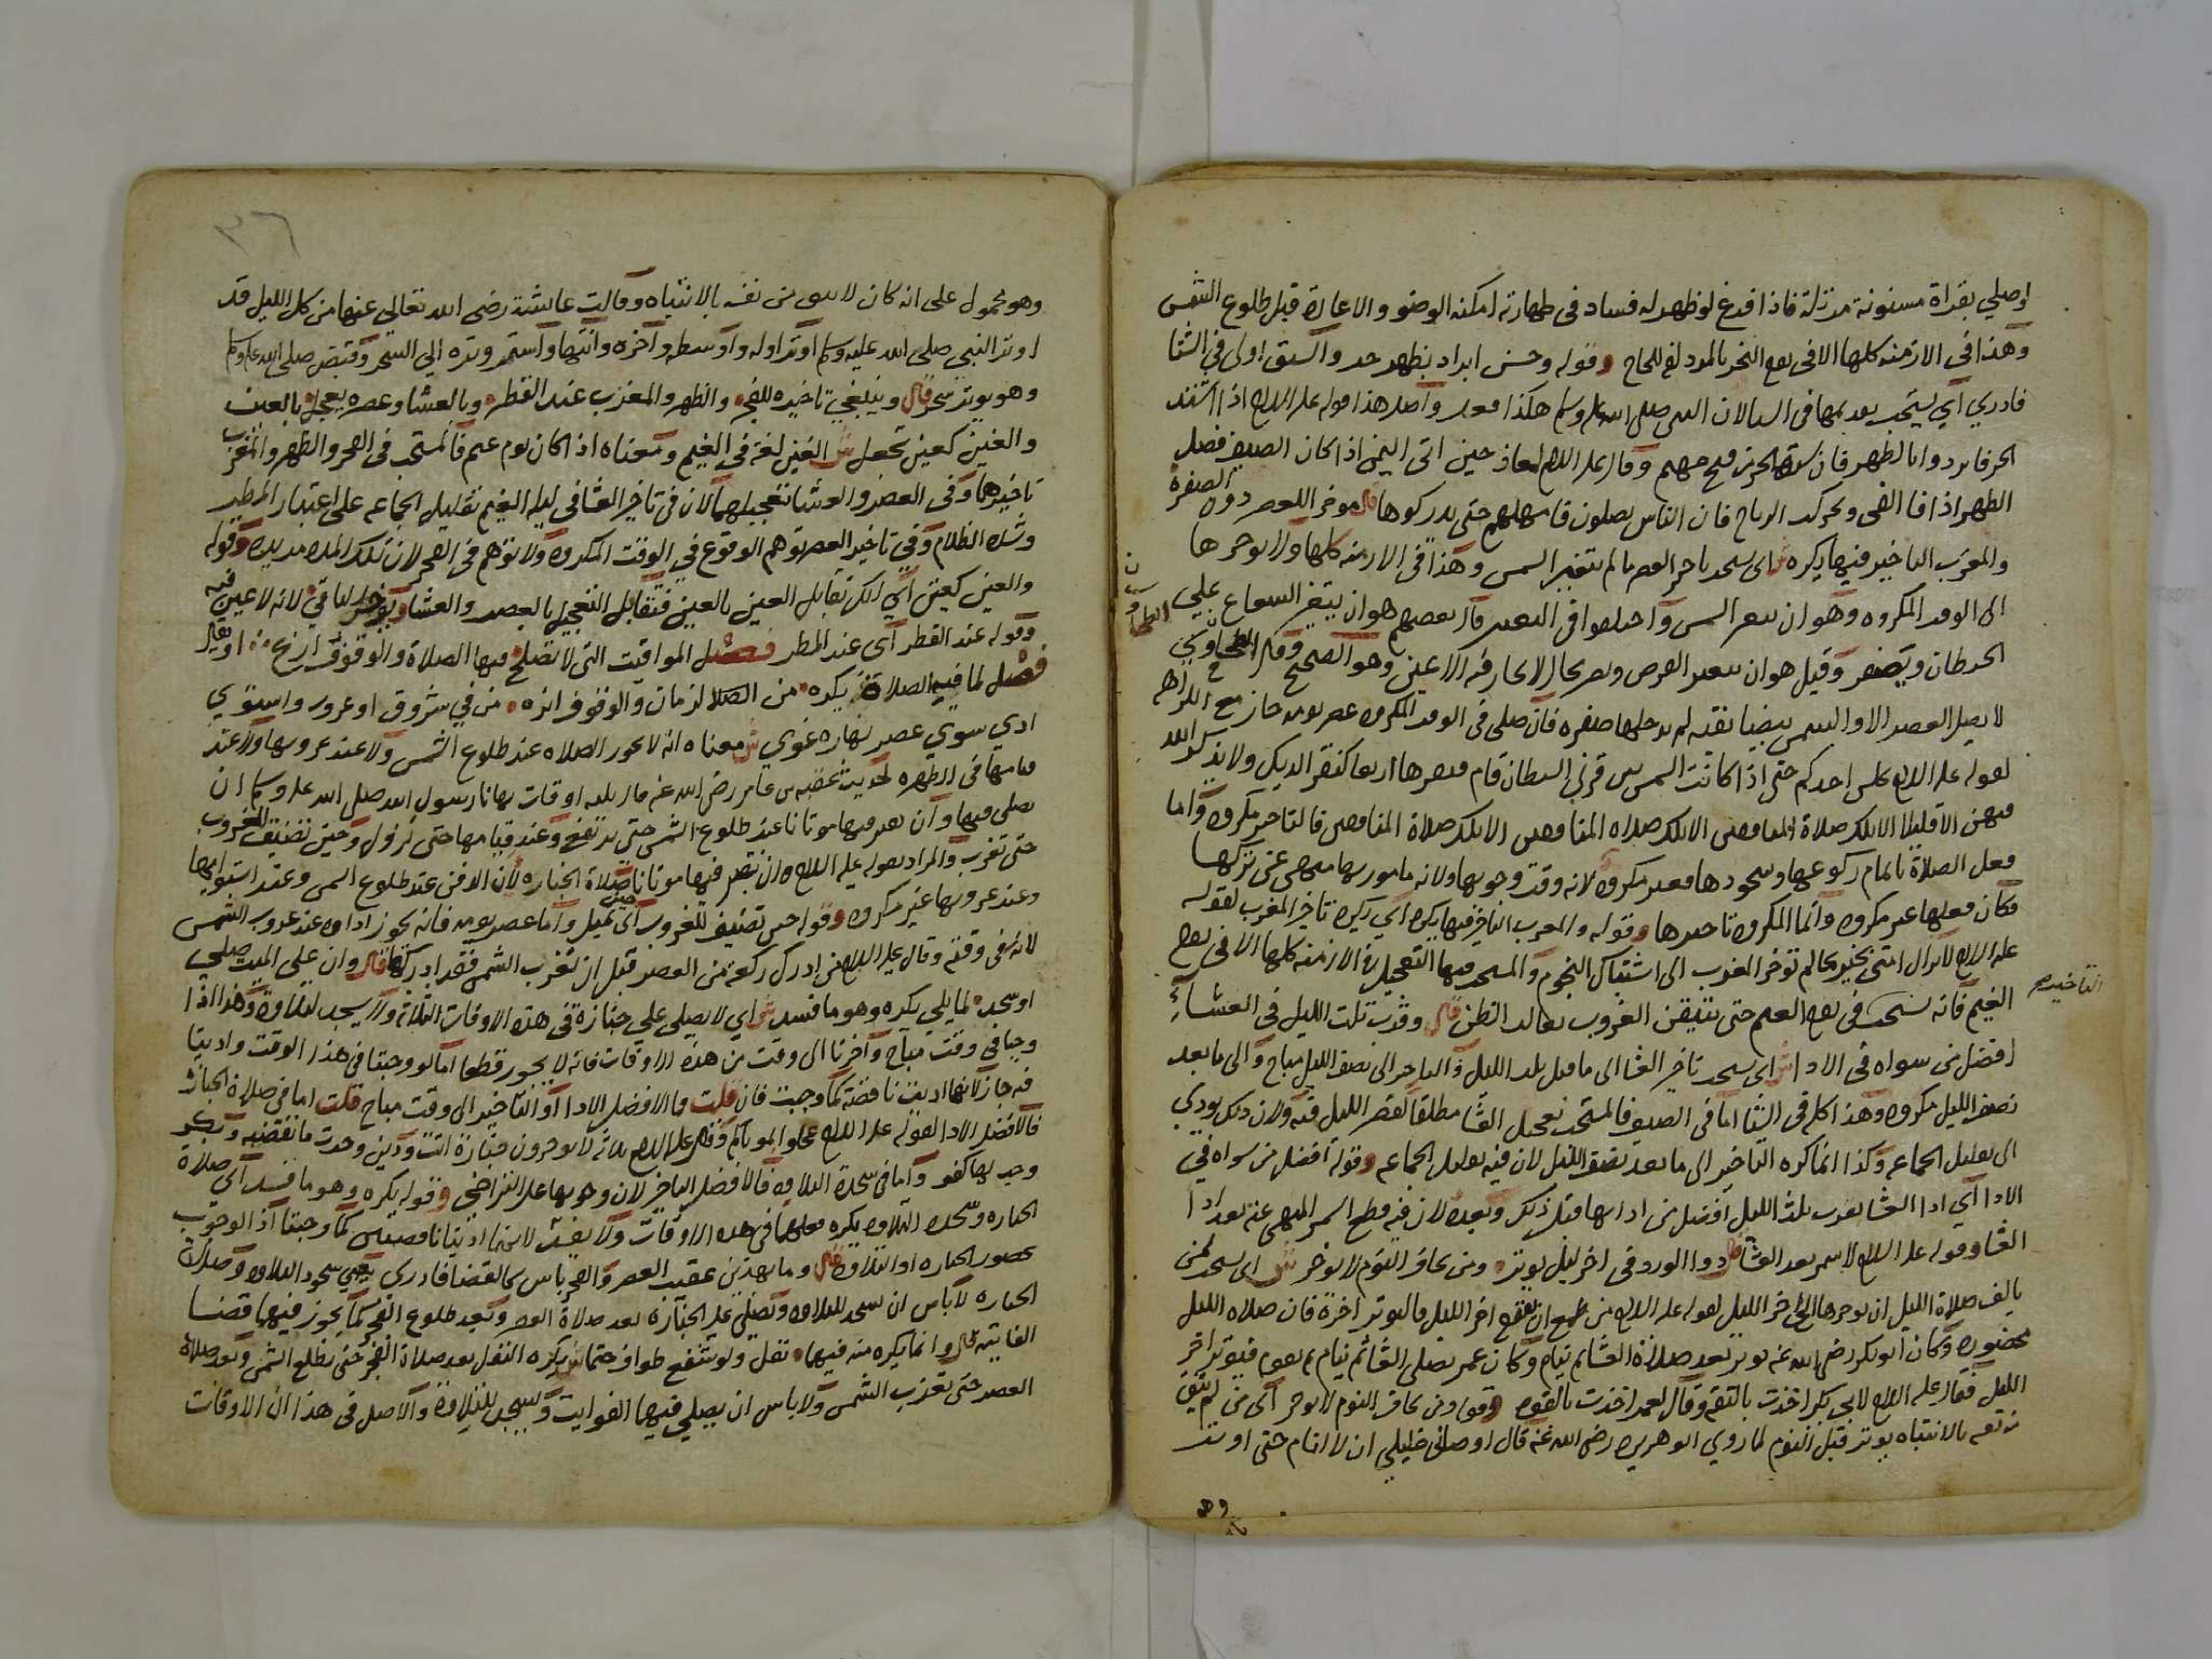 او صلي بقراة مسنونة مرتلة فاذا فرغ لو ظهر له فساد في طهارته امكنه الوضو والاعادة قبل طلوع الشمس
وهذا في الازمنة كلها الا في النحر بالمزدلفة للحاج وقوله وحسن ابراد بظهر اولى في الشتا
فادري اي يستحب صلى الله عليه وسلم هكذا واصل هذا قوله عليه السلام اذا اشتد
الحر فابردوا بالظهر فان الحر من فيح جهنم وقال عليه السلام لمعاذ حين اتى اليمن اذا كان الصيف فصل
الظهر اذا فا الفي وتحركت الرياح فان الناس يصلون فامهلهم حتى يدركوها قال موخر العصر دون الصفرة
والمغرب التاخير فيها يكره ش اي يستحب تاخير العصر ما لم تتغير الشمس وهذا في الازمنة كلها ولا يوخرها
الى الوقت المكروه وهو ان تتغير الشمس واختلفوا في التغير قال بعضهم هو ان يتغير الشعاع علي
الحيطان ويصفر وقيل هو ان يتغير القرص ويصير بحال لا تحار فيه الاعين وهو الصحيح وقال الطحاوي
لا يصلي العصر الا والشمس بيضا نقية لم يدخلها صفرة فان صلى في الوقت المكروه عصر يومه جاز مع الكراهة
لقوله عليه السلام يجلس احدكم حتى اذا كانت الشمس بين قرني الشيطان قام فنقرها اربعا كنقر الديك ولا يذكر الله
فيهن الا قليلا الا تلك صلاة المنافقين الا تلك صلاة المنافقين الا تلك صلاة المنافقين فالتاخير مكروه واما
فعل الصلاة باتمام ركوعها وسجودها فغير مكروه لانه وقت وجوبها ولانه مامور بها منهي عن تركها
فكان فعلها غير مكروه وانما المكروه تاخيرها وقوله والمغرب التاخير فيها يكره اي يكره تاخير المغرب لقوله
عليه السلام لا تزال امتي بخير ما لم توخر المغرب الى اشتباك النجوم والمستحب فيها التعجيل في الازمنة كلها الا في يوم
التاخير صح
الغيم فانه يستحب في يوم الغيم حتى يتيقن الغروب بغالب الظن قال وقرب ثلث الليل في العشاء
افضل من سواه في الادا ش اي يستحب تاخير العشا الى ما قبل ثلث الليل والتاخير الى نصف الليل مباح والى ما بعد
نصف الليل مكروه وهذا كله في الشتا اما في الصيف فالمستحب تعجيل العشا مطلقا لقصر الليل فيه ولان ذلك يودي
الى تقليل الجماعه وكذا انما كره التاخير الى ما بعد نصف الليل لان فيه تقليل الجماعه وقوله افضل من سواه في
الادا اي ادا العشا بقرب ثلث الليل افضل من ادايها قبل ذلك وبعده لان فيه قطع السمر المنهي عنه بعد ادا
العشا وقوله عليه السلام لا سمر بعد العشا قال وذوا الورد في اخر ليل يوتر ومن يخاف النوم لا يوخر ش اي يستحب لمن
يالف صلاة الليل ان يوخرها الى اخر الليل لقوله عليه السلام من طمع ان يقوم اخر الليل فاليوتر اخره فان صلاة الليل
محضورة وكان ابو بكر رضي الله عنه يوتر بعد صلاة العشا ثم ينام وكان عمر يصلي العشا ثم ينام ثم يقوم فيوتر اخر
الليل فقال عليه السلام لابي بكر اخذت بالثقه وقال لعمر اخذت بالقوه وقوله ومن يخاف النوم لا يوخر اي من لم يثق
نفسه بالانتباه يوتر قبل النوم لما روي ابو هريره رضي الله عنه قال اوصاني خليلي ان لا انام حتى اوتر
وهو
٣٦
وهو محمول على انه كان لا يثق من نفسه بالانتباه وقالت عائشة رضى الله تعالى عنها من كل الليل قد
اوتر النبي صلى الله عليه وسلم اوتر اوله واوسطه واخره وانتها واستمر وتره الي السحر وقبض صلى الله عليه وسلم
وهو يوتر سحر قال وينبغي تاخيره للفجر والظهر والمغرب عند القطر وبالعشا وعصره يعجل بالعين
والغين كعين تجعل ش الغين لغة في الغيم ومعناه اذا كان يوم غيم فالمستحب في الفجر والظهر والمغرب
تاخيرها وفي العصر والعشا تعجيلهما لان في تاخير العشا في ليلة الغيم تقليل الجماعه على اعتبار المطر
وشدة الظلام وفي تاخير العصر توهم الوقوع في الوقت المكروه ولا توهم في الفجر لان تلك المدة مديده وقوله
والعين كعين اي لكن تقابل العين بالعين فتقابل التعجيل بالعصر والعشا ويوخر الباقي لانه لا عين فيه
وقوله عند القطر اي عند المطر فصل المواقيت التي لا تصلح فيها الصلاة والوقوف ارخ او يقال
فصل لما فيه الصلاة يكره من الازمان والوقوف انزه من في شروق او غروب واستوي
ادي سوي عصر نهاره غوي ش معناه انه لا تجوز الصلاة عند طلوع الشمس ولا عند غروبها ولا عند
قيامها في الظهيره لحديث عقبه بن عامر رضي الله عنه قال ثلثة اوقات نهانا رسول الله صلى الله عليه وسلم ان
نصلي فيها وان نقبر فيها موتانا عند طلوع الشمس حتى ترتفع وعند قيامها حتى تزول وحين تضيف للغروب
حتى تغرب والمراد بقوله عليه السلام وان نقبر فيها موتانا صلاة الجنازه لان الدفن عند طلوع الشمس وعند استوايها
وعند غروبها غير مكروه وقوله حين تضيف للغروب اي تميل واما عصر يومه فانه يجوز اداوه عند غروب الشمس
لانه في وقته وقال عليه السلام من ادرك ركعة من العصر قبل ان تغرب الشمس فقد ادركها قال وان على الميت صلى
او سجد لما يلي يكره وهو ما فسد ش اي لا يصلي علي جنازة في هذه الاوقات الثلاثة ولا يسجد لتلاوة وهذا اذا
وجبا في وقت مباح واخرتا الى وقت من هذه الاوقات فانه لا يجوز قطعا اما لو وجبتا في هذا الوقت واديتا
فيه جاز لانها اديت ناقصة كما وجبت فان قلت ما الافضل الادا او التاخير الى وقت مباح قلت اما في صلاة الجنازة
فالافضل الادا لقوله عليه السلام عجلوا بموتاكم وقال عليه السلام ثلاثة لا يوخرون جنازة اتت ودين وجدت ما تقضيه وبكر
وجد لها كفو واما في سجدة التلاوه فالافضل التاخير لان وجوبها على التراخي وقوله يكره وهو ما فسد اي صلاة
الجنازه وسجدة التلاوه يكره فعلهما في هذه الاوقات ولا يفسد لانهما اديتا ناقصتين كما وجبتا اذ الوجوب
بحضور الجنازه او التلاوه قال وما بهذين عقيب العصر والفجر باس كالقضا فادري يعني سجود التلاوه وصلاة
الجنازه لا باس ان يسجد للتلاوه ويصلي على الجنازة بعد صلاة العصر وبعد طلوع الفجر كما يجوز فيهما قضا
الفايته قال وانما يكره منه فيهما نفل ولو شفع طواف حتما ش يكره التنفل بعد صلاة الفجر حتى تطلع الشمس وبعد صلاة
العصر حتى تغرب الشمس ولا باس ان يصلي فيهما الفوايت ويسجد للتلاوة والاصل في هذا ان الاوقات